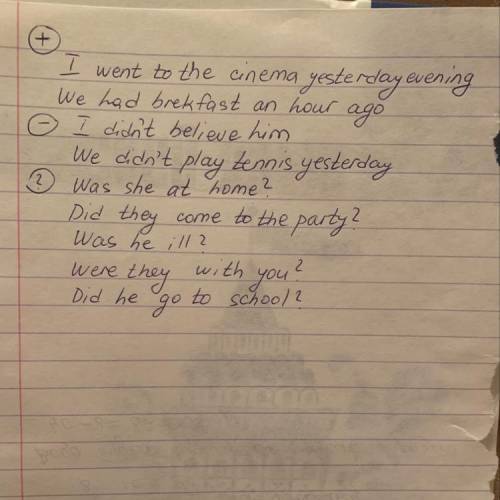 +
I went to the cinema yesterday evening
We had brekfast an hour ago
- I didn't believe him
We didn't play tennis yesterday
? Was she at home?
Did they come to the party?
Was he ill?
Were they with you?
Did he go to school?